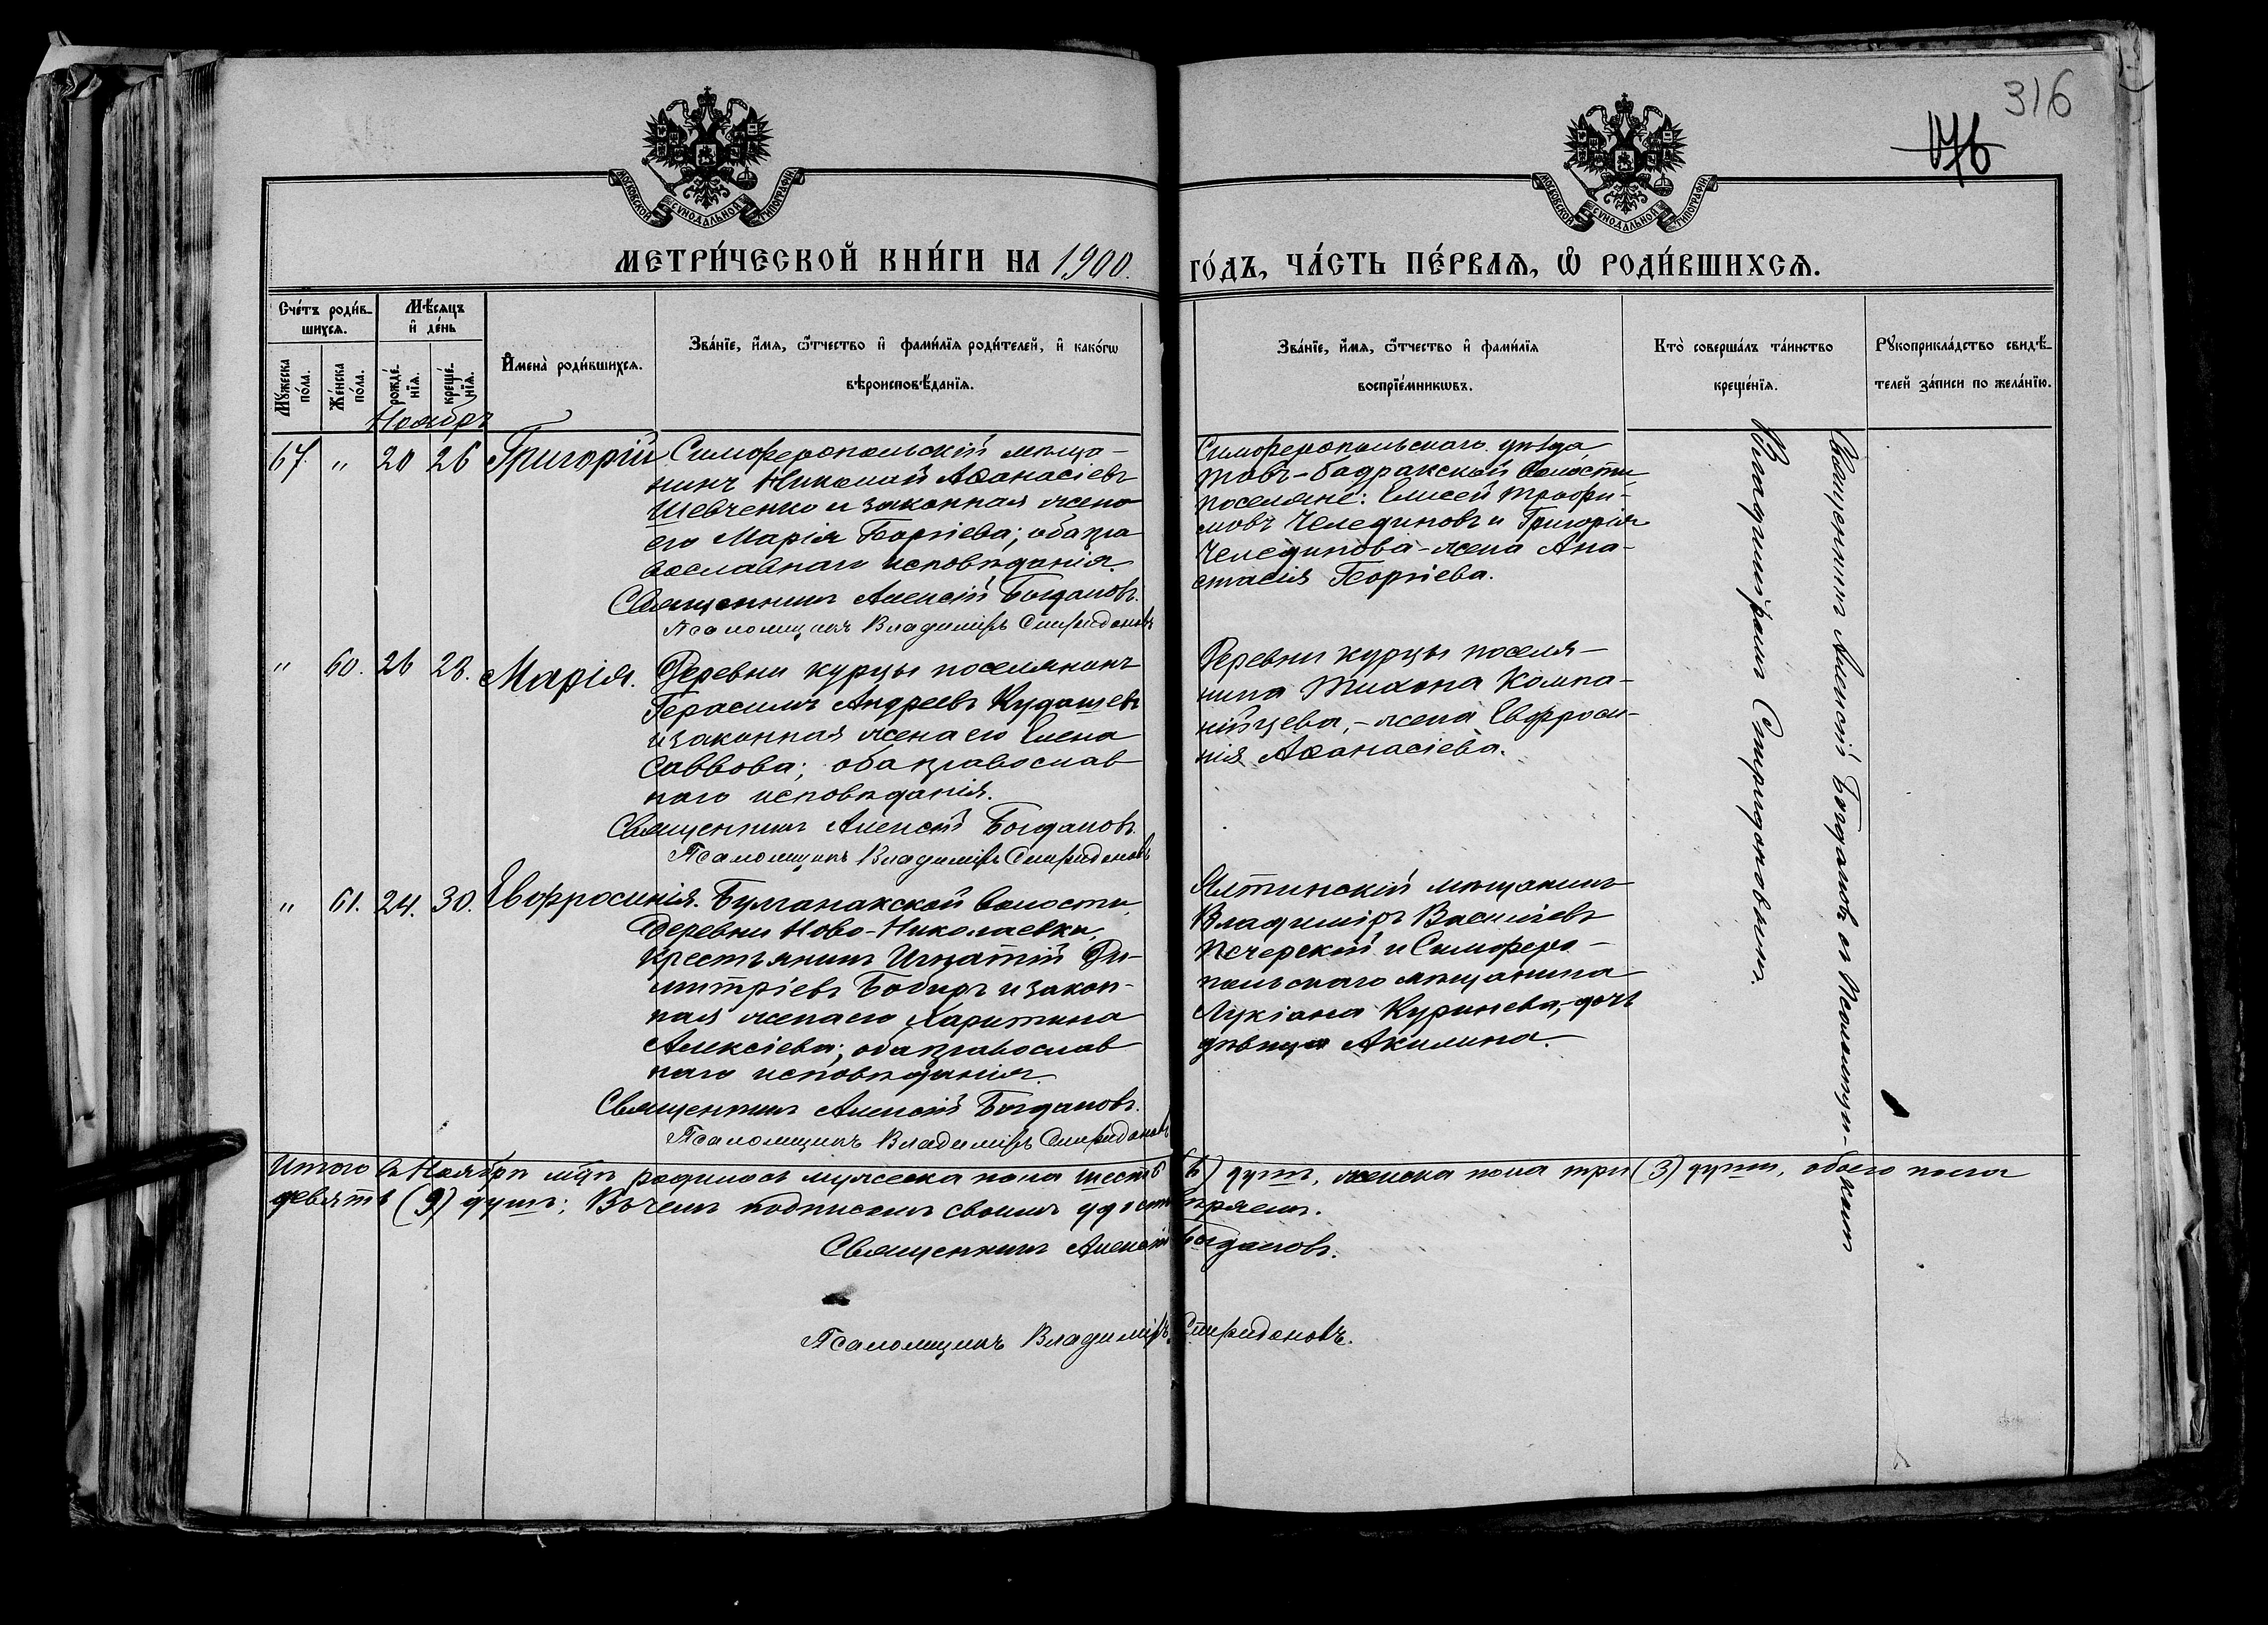 316
176
МОСКОВСКОЙ СУНОДАЛЬНОЙ ТИПОГРАФІИ
МОСКОВСКОЙ СУНОДАЛЬНОЙ ТИПОГРАФІИ
МЕТРИ́ЧЕСКОЙ КНИ́ГИ НА 1900.
ГО́ДЪ, ЧА́СТЬ ПЕ́РВАЯ, Ѡ РОДИ́ВШИХСЯ.
Сче́тъ роди́в-
шихся.
Мꙋжеска по́ла.
Же́нска по́ла.
Мѣ́сяцъ
и҆ де́нь
рожде́-
нїя.
креще́-
нїя.
И҆мена̀ роди́вшихся.
Зва́нїе, и҆́мя, ѻ҆́тчество и҆ фами́лїя роди́телей, и҆ како́гѡ
вѣроисповѣ́данїя.
Зва́нїе, и҆́мя, ѻ҆́тчество и҆ фами́лїя
воспрїе́мникѡвъ.
Кто̀ соверша́лъ та́инство
креще́нїя.
Рꙋкоприкла́дство свидѣ́-
телей за́писи по жела́нїю.
Ноябрь
67. " 20 26 Григорій
Симферопольскій мѣща-
нинъ Николай Аѳанасіевъ
Шевченко и законная жена
его Марія Георгіева; оба пра
вославнаго исповѣданія.
Священникъ Алексій Богдановъ.
Псаломщикъ Владиміръ Спиридоновъ
Симферопольскаго уѣзда,
Тавъ-бадракской волости
поселяне: Елисей Трофи-
мовъ Челединовъ и Григорія
Челединова - жена Ана-
стасія Георгіева.
" 60. 26 28. Марія.
Деревни курцы поселянинъ
Герасимъ Андреевъ Кудашевъ
и законная жена его Елена
Саввова; оба православ
наго исповѣданія.
Священникъ Алексій Богдановъ.
Псаломщикъ Владиміръ Спиридоновъ
Деревни курцы поселя-
нина Тихона Компа-
нійцева, - жена Евфроси-
нія Аѳанасіева.
" 61. 24. 30. Евфросинія.
Булганакской волости,
деревни Ново-Николаевки,
крестьянинъ Игнатій Ди-
митріевъ Бобырь и закон-
ная жена его Харитина
Алексіева; оба православ
наго исповѣданія.
Священникъ Алексій Богдановъ.
Псаломщикъ Владиміръ Спиридоновъ
Ялтинскій мѣщанинъ
Владиміръ Василіевъ
Печерскій и Симферо-
польскаго мѣщанина
Лукіана Куринева, - дочь
дѣвица Акилина.
Священникъ Алексій Богдановъ съ Псаломщи-комъ
Владиміромъ Спиридоновымъ.
Итого въ Ноябрѣ мцѣ родилось мужеска пола шесть (6) душъ, женска пола три (3) душъ, обоего пола
девять (9) душъ; Въ чемъ подписомъ своимъ удостовѣряемъ.
Священникъ Алексій Богдановъ.
Псаломщикъ Владиміръ Спиридоновъ.